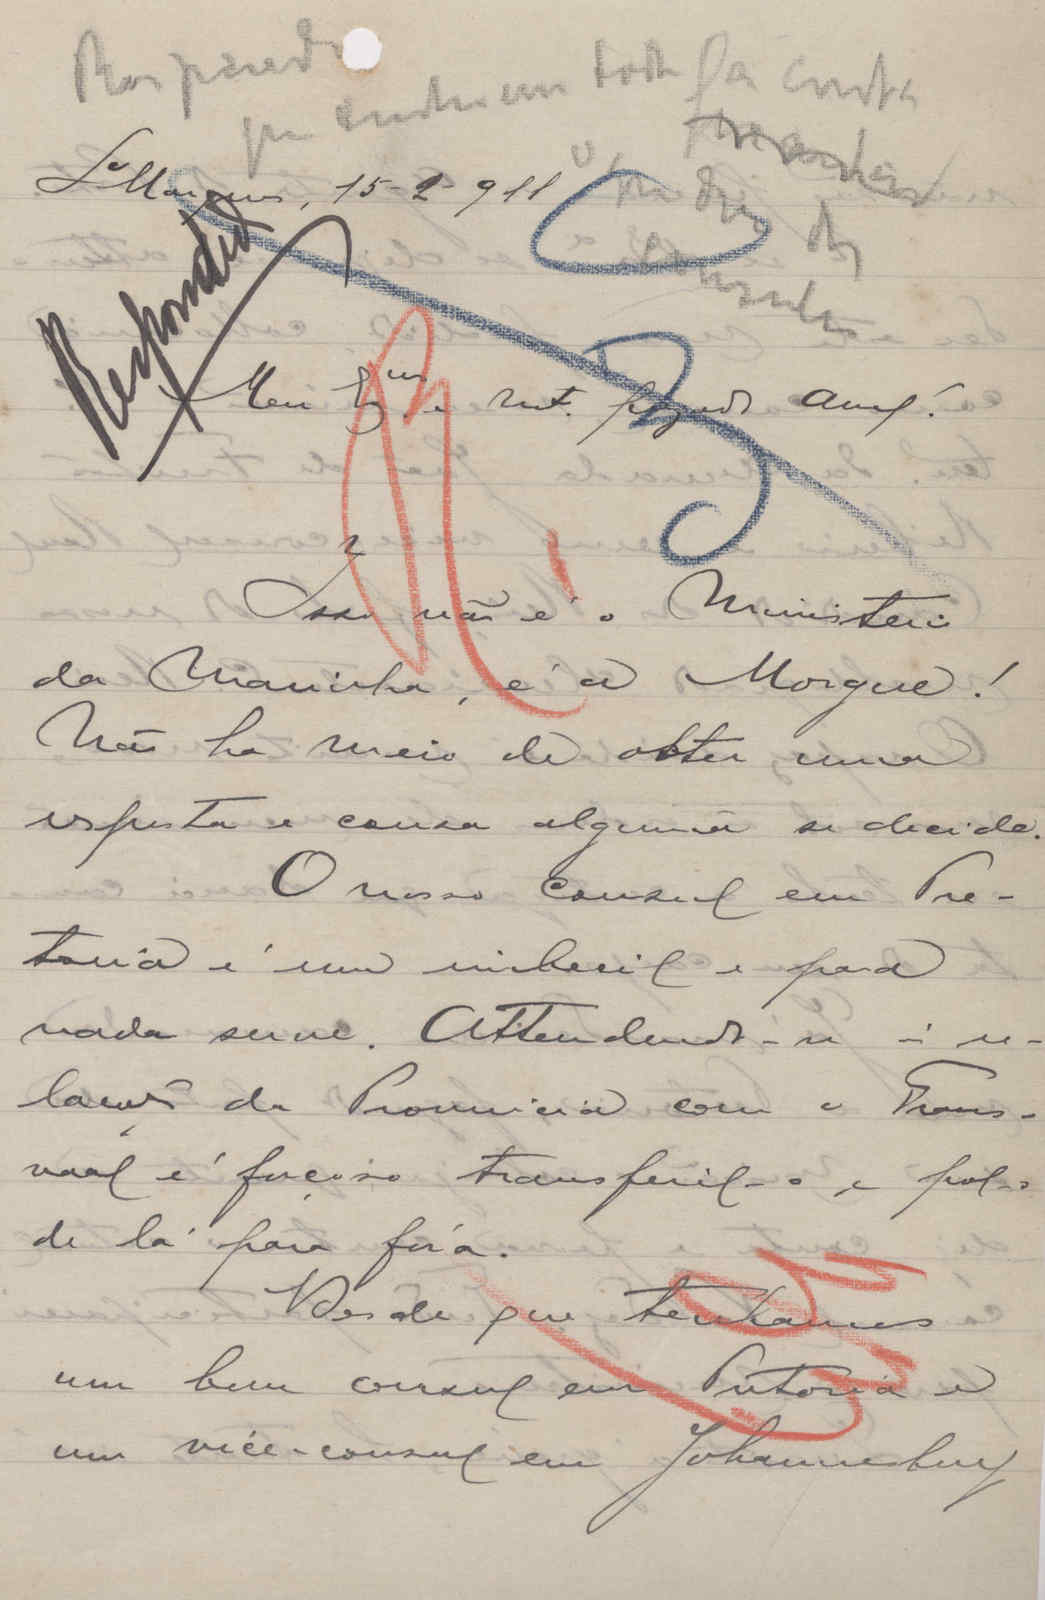 Respondendo
L.ço Marques, 15-2-911
Respondido
Meu Ex.mo e mt. prezado Am.º!
Isso não é o Ministerio
da Marinha, é a Morgue!
Não ha meio de obter uma
resposta e cousa alguma se decide.
O nosso consul em Pre-
toria é um imbecil e para
nada serve. Attendendo-se ás re-
lações da Provincia com o Trans-
vaal é forçoso transferil-o e pol-o
de lá para fóra.
Desde que tenhamos
um bom consul em Pretoria e
um vice-consul em Johannesburg